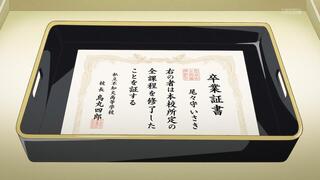 卒業証書
尾々守いさき
右の者は本校所定の
全課程を修了した
ことを証する
私立不知火高等学校
校長 鳥丸四郎